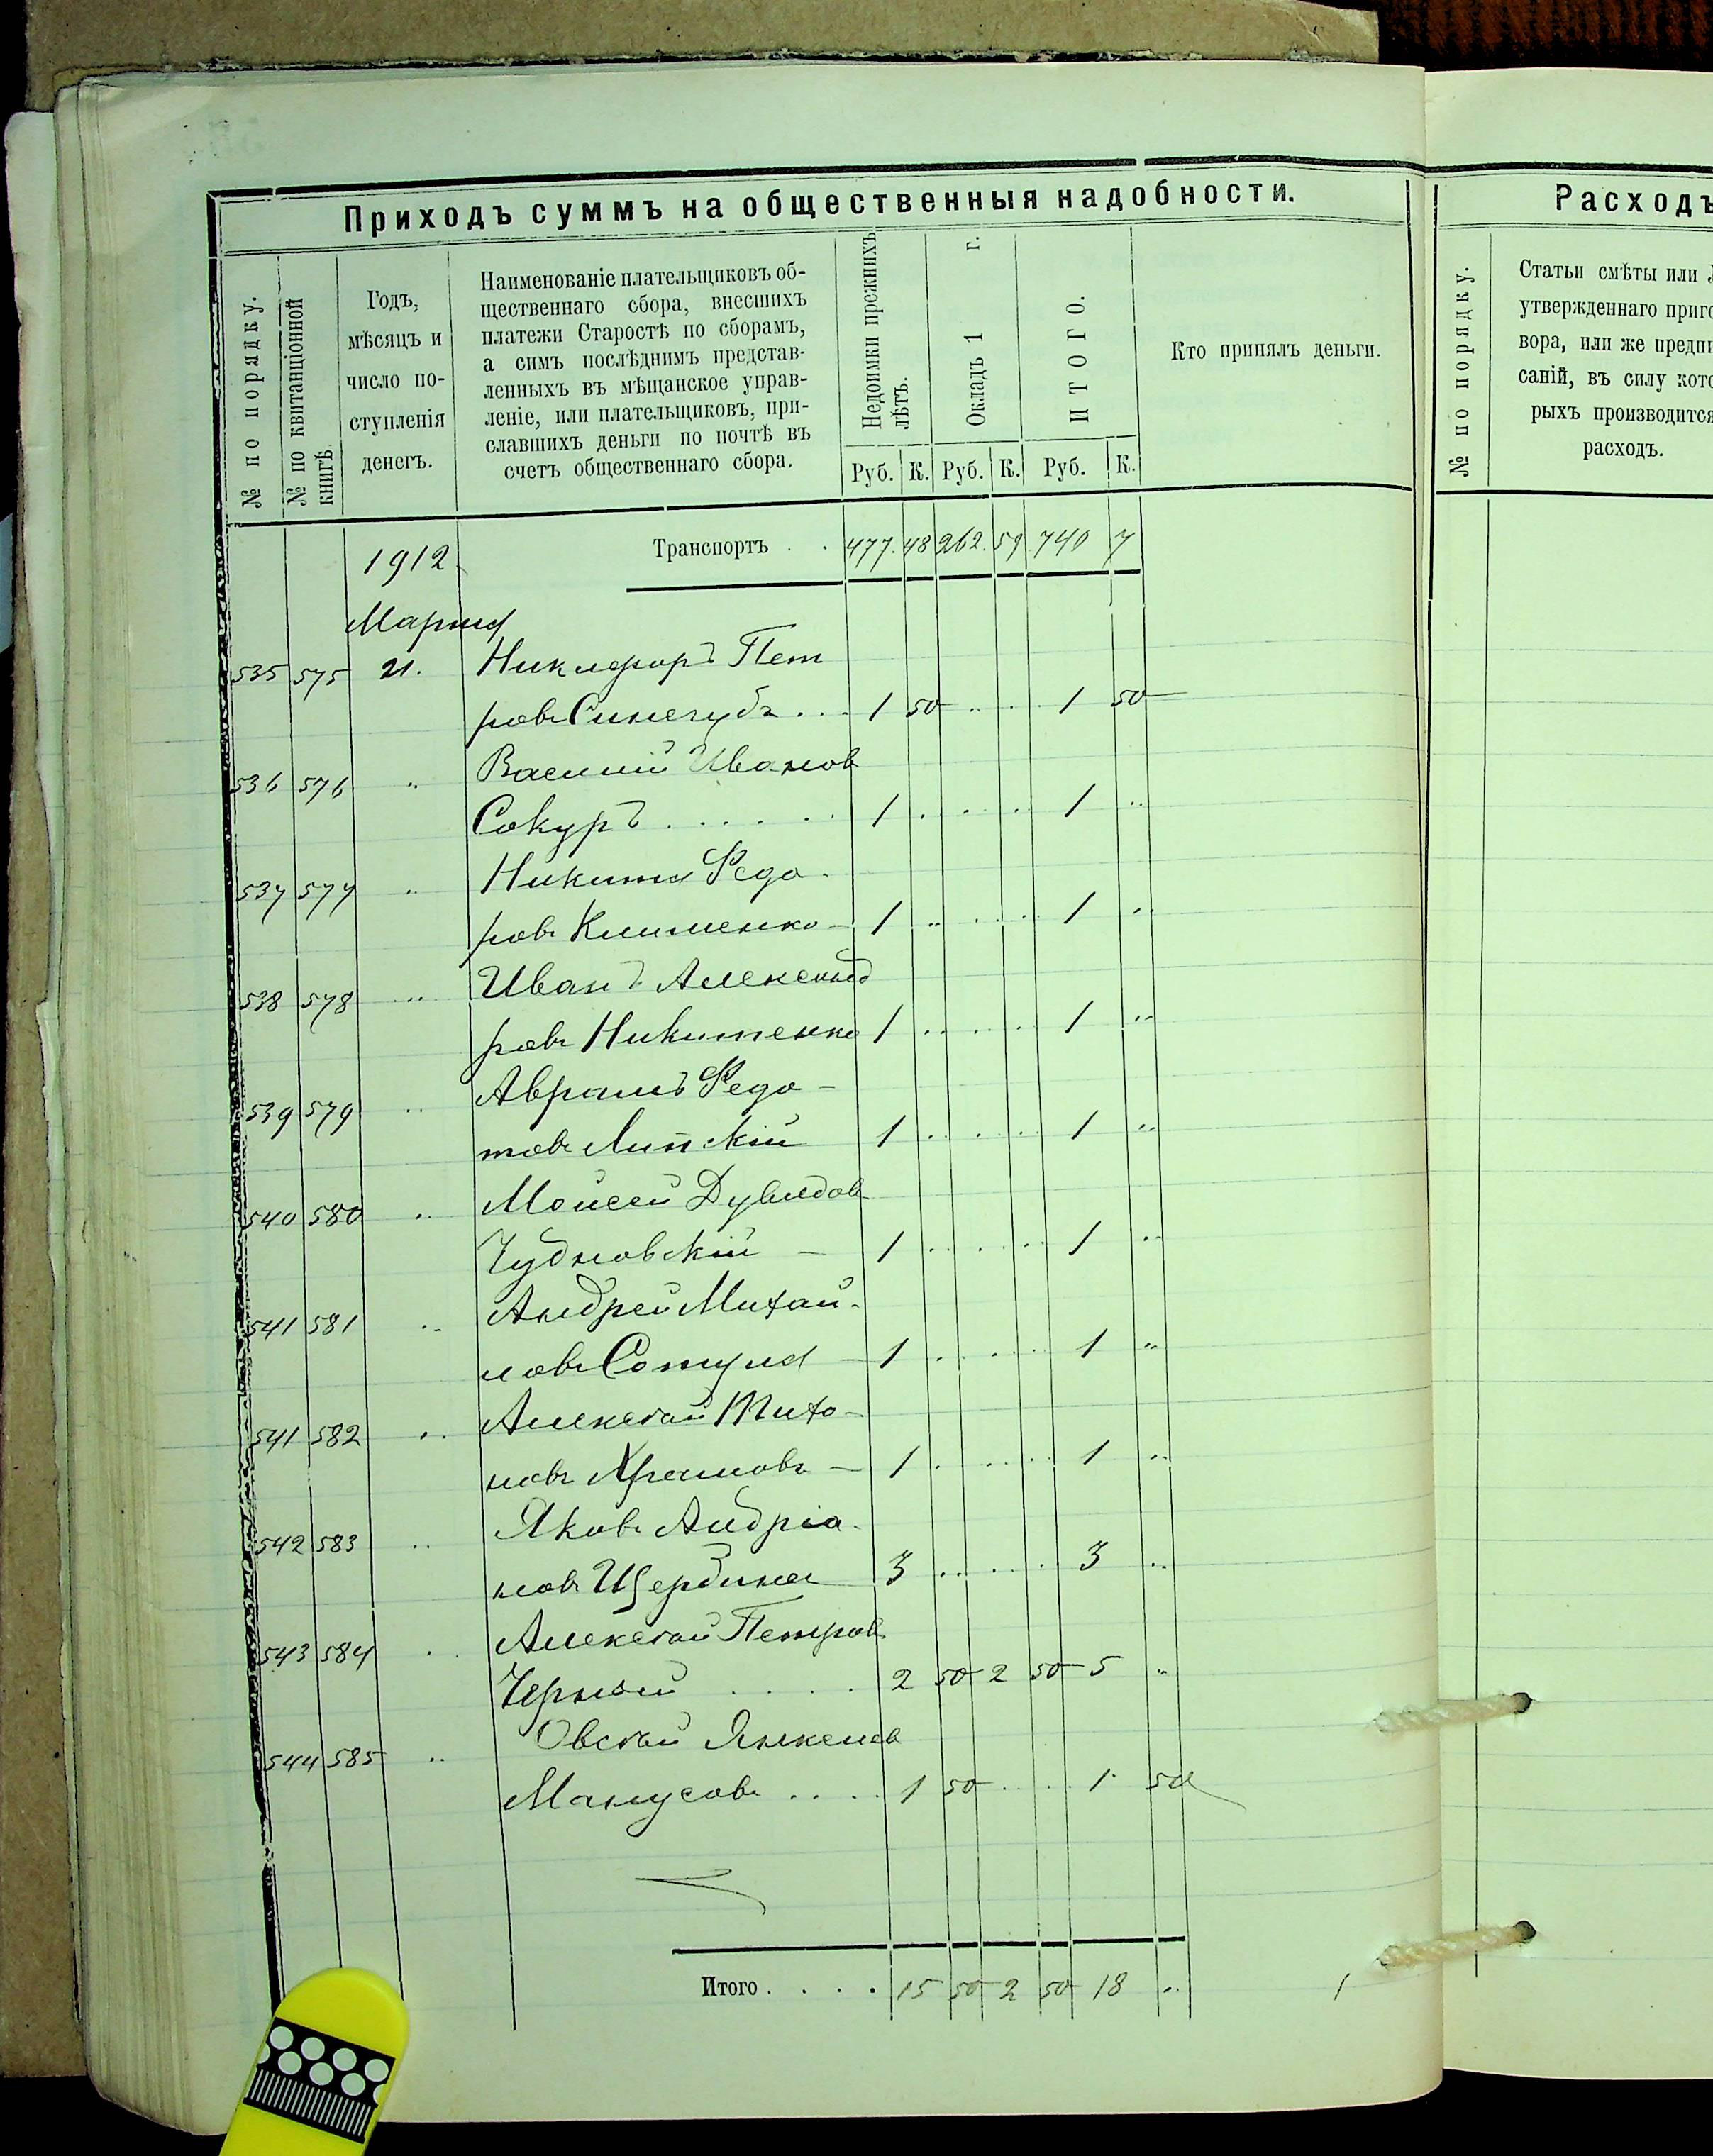 Приходъ суммъ на общественныя надобности.
№ по порядку.
№ по квитанціонной книгѣ.
Годъ,
мѣсяцъ и
число по-
ступленія
денегъ.
Наименованіе плательщиковъ об-
щественнаго сбора, внесшихъ
платежи Старостѣ по сборамъ,
а симъ послѣднимъ представ-
ленныхъ въ мѣщанское управ-
леніе, или плательщиковъ, при-
славшихъ деньги по почтѣ въ
счетъ общественнаго сбора.
Недоимки прежнихъ лѣтъ.
Окладъ 1 г.
ИТОГО.
Кто принялъ деньги.
Руб. К. Руб. К. Руб. К.
1912 Транспортъ . . 477. 48 262. 59 740 7
Марта
535 575 21. Никифоръ Пет
ровъ Синегубъ . . . 1 50 . . . . 1 50
536 576 " Василій Иванов
Сокуръ . . . . . . 1 . . . . 1 "
537 577 " Никита Федо-
ровъ Клименко - 1 " . . . . 1 "
538 578 " Иванъ Александ
ровъ Никитенко 1 . . . . . 1 "
539 579 " Аврамъ Федо-
товъ Липскій 1 . . . . . 1 "
540 580 " Мойсей Дувидов
Чудновскій - 1 . . . . . 1 "
541 581 " Андрей Михай-
ловъ Сотула - 1 . . . . 1 "
541 582 " Алексѣй Тихо-
новъ Храмовъ - 1 . . . . . 1 "
542 583 " Яковъ Андріа-
новъ Щербина 3 . . . . 3 "
543 584 " Алексѣй Петров
Черный . . . . . 2 50 2 50 5 "
544 585 " Овсѣй Янкелев
Манусовъ . . . . 1 50 . . . . 1. 50
Итого . . . . 15 50 2 50 18 "
Расходъ
№ по порядку.
Статьи смѣты или
утвержденнаго приго
вора, или же предпи
саній, въ силу кото
рыхъ производится
расходъ.